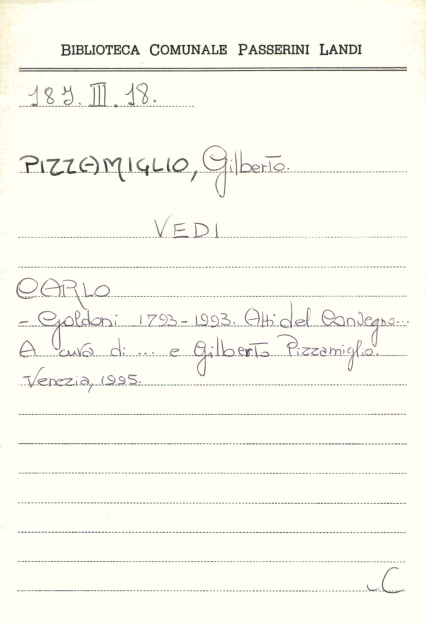 BIBLIOTECA COMUNALE PASSERINI LANDI
187. III. 18.
PIZZAMIGLIO, Gilberto.
VEDI
CARLO
- Goldoni 1793-1993. Atti del Convegno...
A cura di ... e Gilberto Pizzamiglio.
Venezia, 1995.